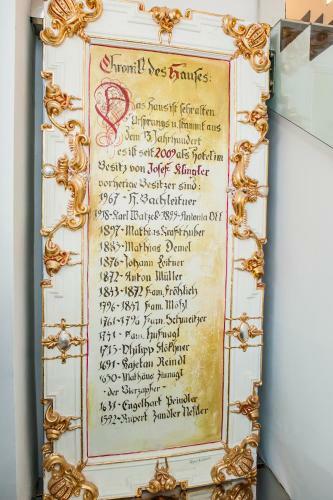 Chronik des Hauses:
Das Haus ist sehr alten
Ursprungs u. stammt aus
dem 13. Jahrhundert
es ist seit 2009 als Hotel im
Besitz von Josef Klingler
vorherige Besitzer sind:
1967 - H. Bachleitner
1918-Karl Watzek-1899-Antonia Ott
1897-Mathias Krafthuber
1883-Mathias Demel
1876-Johann Leitner
1872-Anton Müller
1833-1872 Fam. Fröhlich
1796-1831 Fam. Mösl
1761-1796 Fam. Schweitzer
Fam. Hufnagl
1713-Philipp Stökhner
1691-Kajetan Reindl
1650-Mathäus
-der Bierzapfer-
1631-Engelhart Peindler
1592-Rupert Zandler